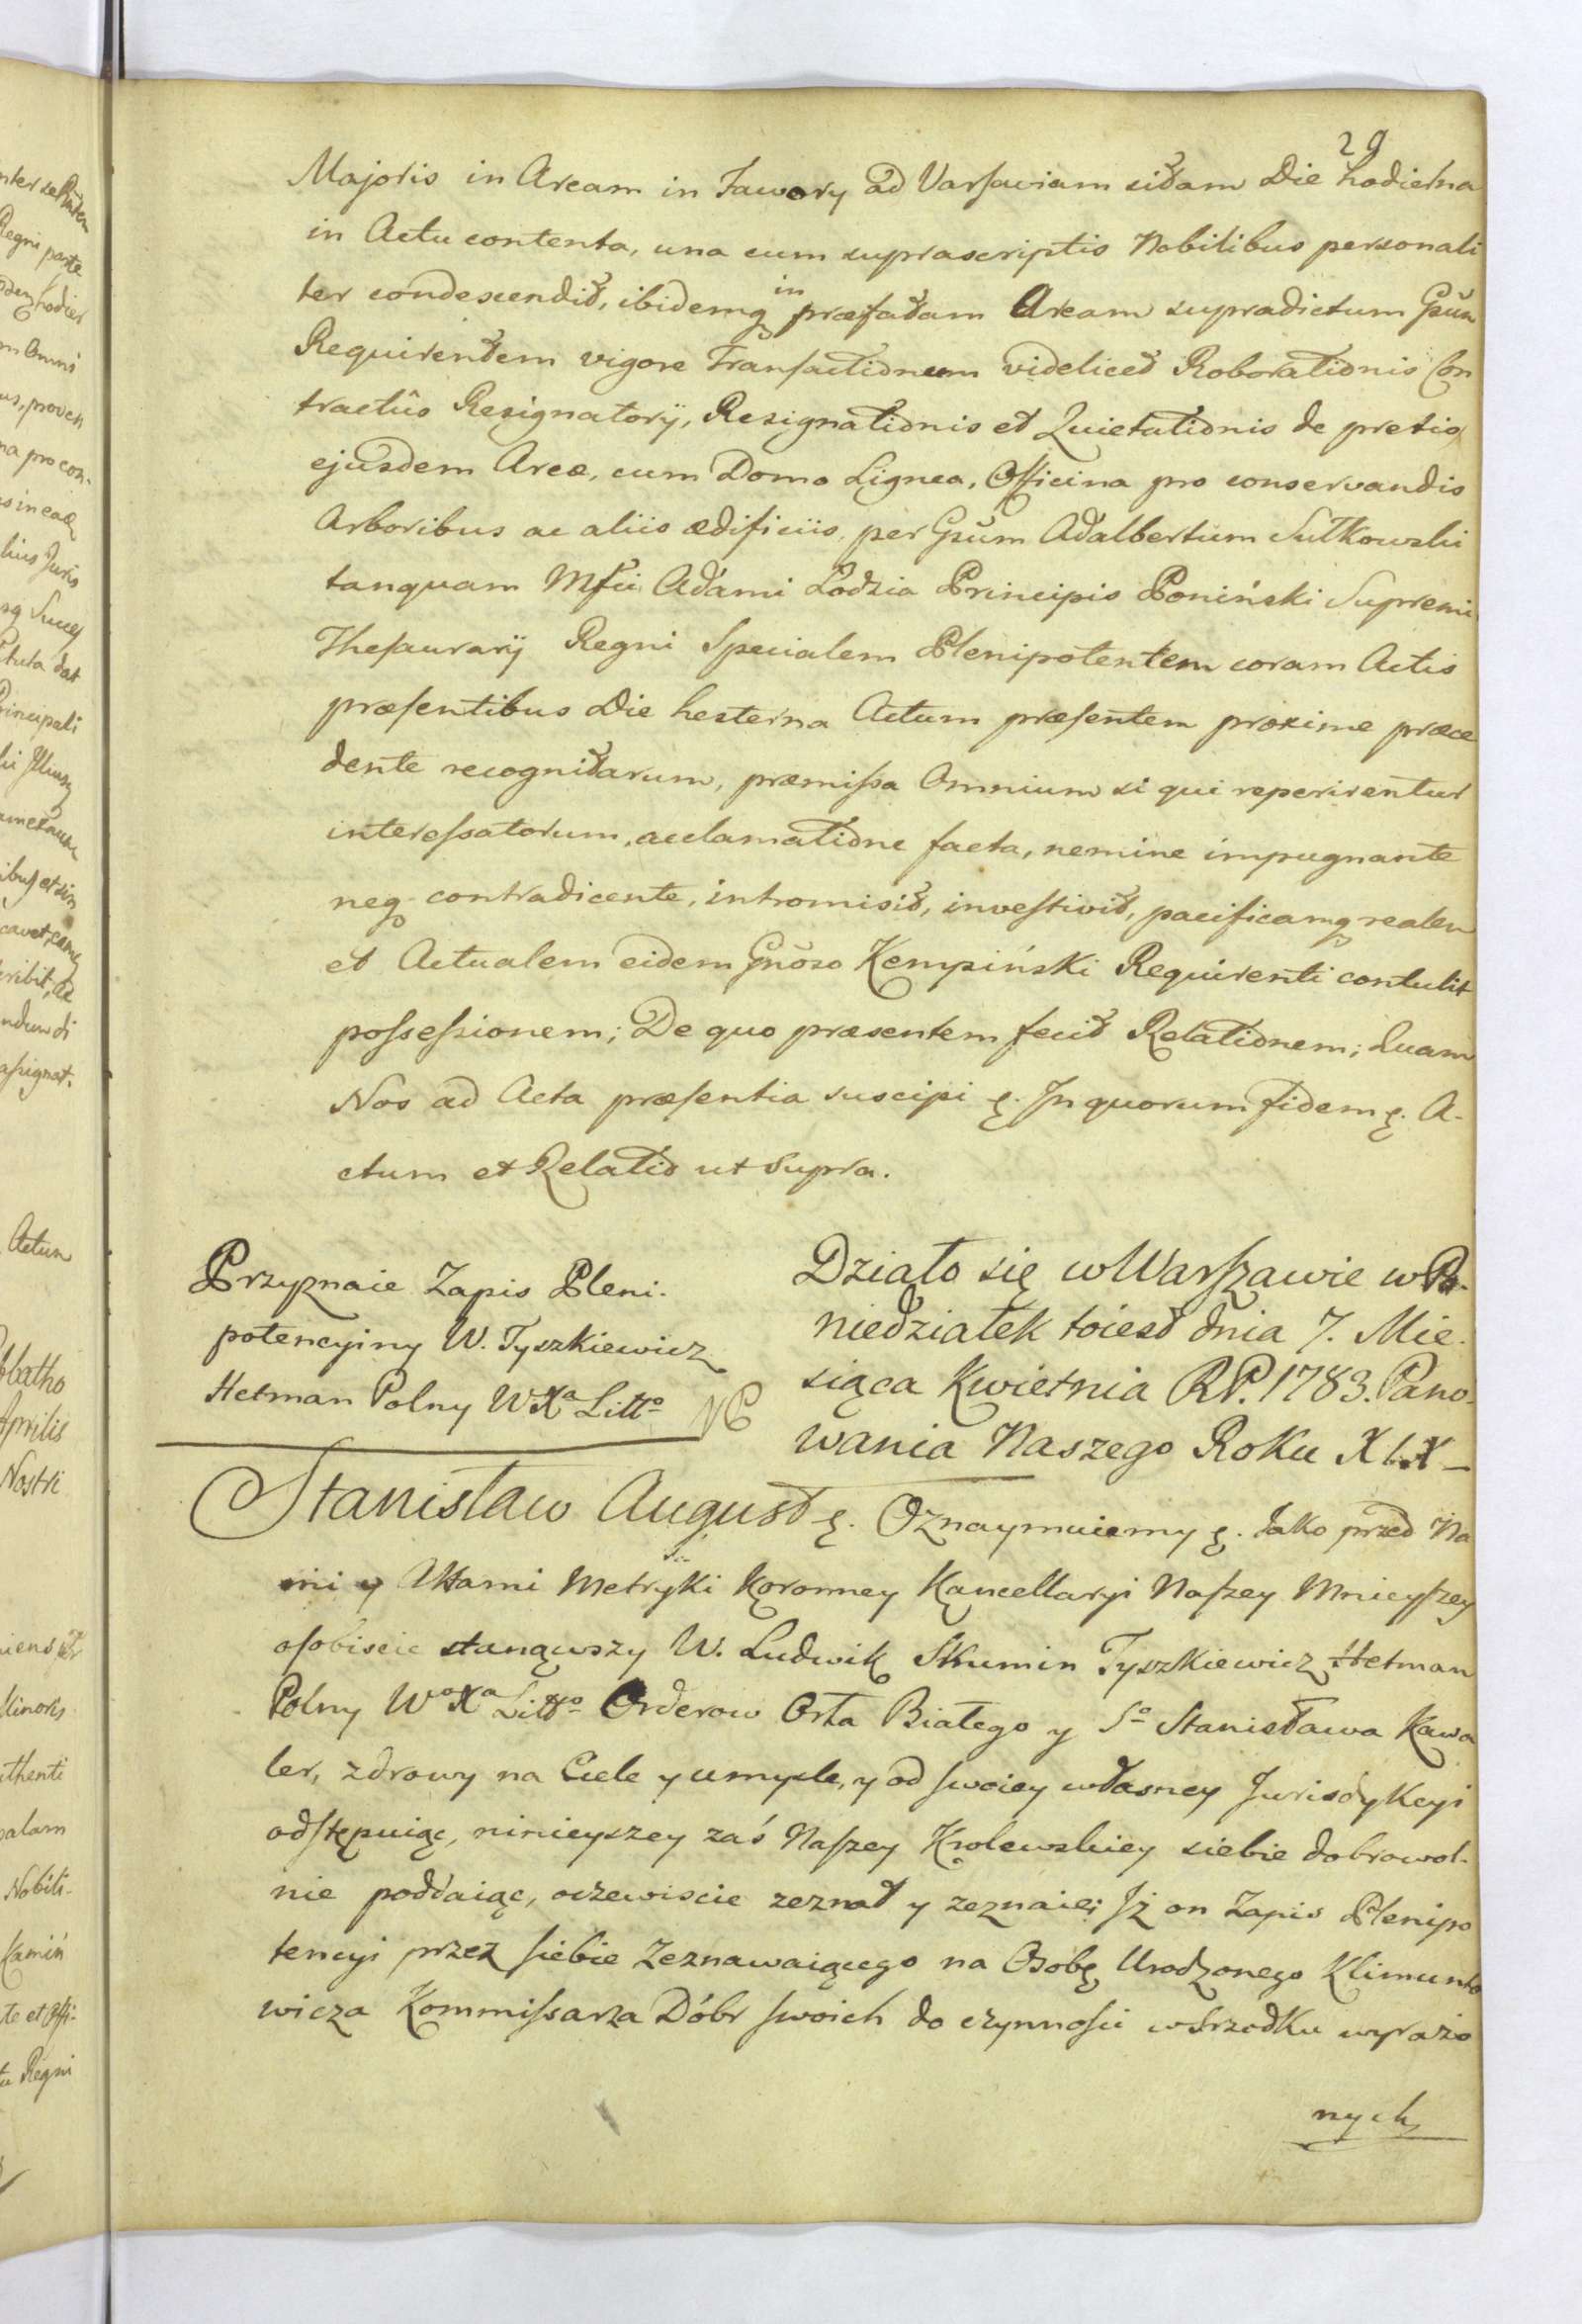 29
Majoris in Aream in Jawory ad Varsaviam sitam Die hodierna
in Actu contenta, una cum suprascriptis Nobilibus personali
ter condescendit, ibidemq in præfatam Aream supradictum Gsum
Requirentem vigore Transactionum videlicet Roborationis Con
tractûs Resignatorij, Resignationis et Quietationis de pretio
ejusdem Areæ, cum Domo Lignea, Officina pro conservandis
Arboribus ac aliis ædificiis, per Gsum Adalbertum Sułkowski
tanquam Mfci Adami Łodzia Principis Poniński Supremi
Thesaurarij Regni Specialem Plenipotentem coram Actis
præsentibus Die hesterna Actum præsentem proxime præce
dente recognitarum, præmissa Omnium si qui reperirentur
interessatorum, acclamatione facta, nemine impugnante
neq contradicente, intromisit, investivit, pacificamq realem
et Actualem eidem Gnoso Kempiński Requirenti contulit
possessionem; De quo præsentem fecit Relationem; Quam
Nos ad Acta præsentia suscipi ę. In quorum fidem ę. A-
ctum et Relatio ut supra.
Przyznaie Zapis Pleni-
potencyiny W. Tyszkiewicz
Hetman Polny WXa Litto NP
Działo się w Warszawie w Po-
niedziałek toiest dnia 7. Mie-
siąca Kwietnia RP. 1783. Pano-
wania Naszego Roku XIX
Stanisław August ę. Oznaymuiemy ę. Jako przed Na
mi y Aktami Metryki Koronney Kancellaryi Naszey Mnieyszey
osobiscie stanąwszy W. Ludwik Skumin Tyszkiewicz Hetman
Polny Wo Xa Litto Orderow Orła Białego y So Stanisława Kawa
ler, zdrowy na Ciele y umysle, y od swoiey własney Jurisdykcyi
odstępuiąc, ninieyszey zaś Naszey Krolewskiey siebie dobrowol-
nie poddaiąc, oczewiscie zeznał y zeznaie; Jż on Zapis Plenipo
tencyi przez siebie Zeznawaiącego na Osobę Urodzonego Klimunto
wicza Kommissarza Dóbr swoich do czynnosci w srzodku wyrażo
nych